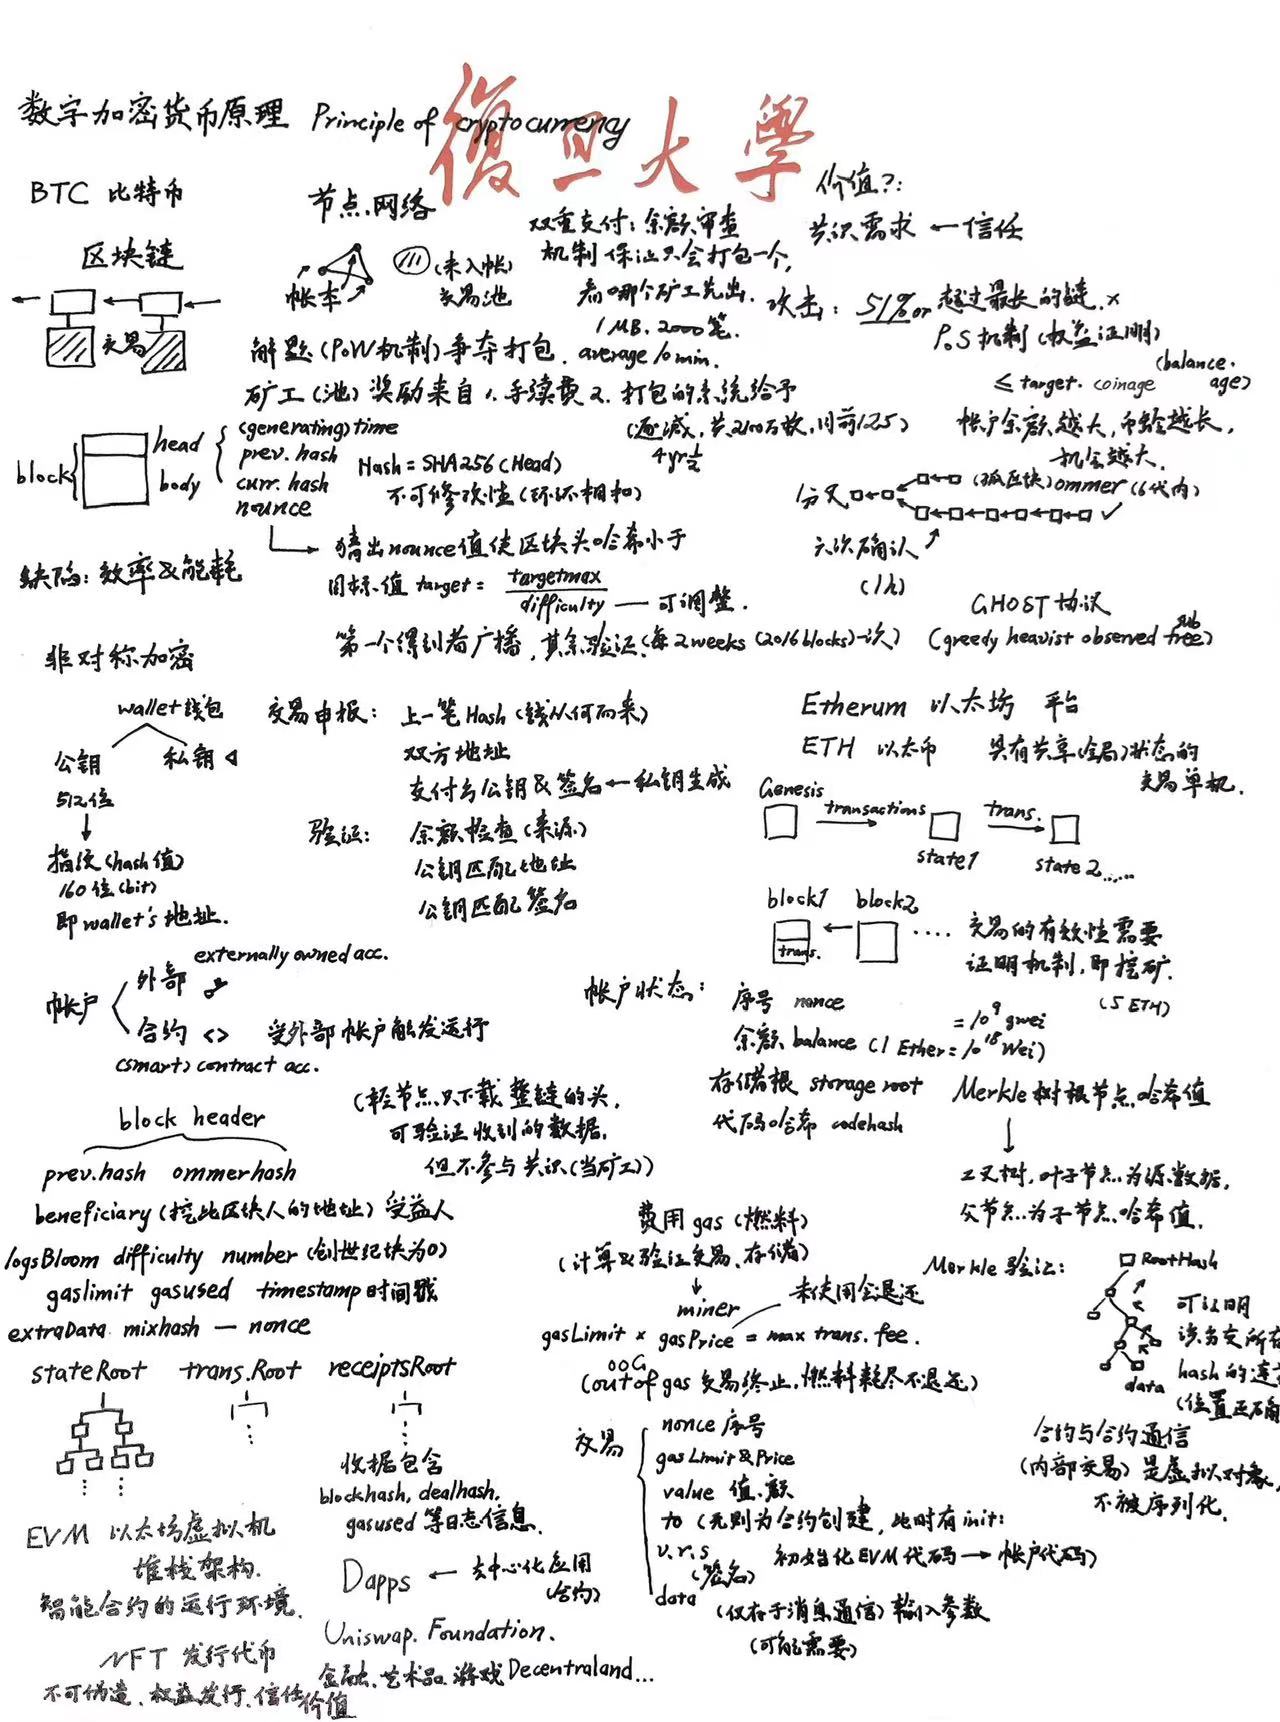 数字加密货币原理 Principle of cryptocurrency
復旦大學
BTC 比特币
区块链
交易
节点网络
帐本
(未入帐)
交易池
双重支付：余额审查
机制保证只会打包一个，
看哪个矿工先出.
1MB. 2000笔.
价值?：
共识需求 ← 信任
攻击：51% or 超过最长的链. ×
PoS机制(权益证明)
(balance.
≤ target. coinage age)
帐户余额越大，币龄越长，
机会越大.
解题(PoW机制)争夺打包. average 10min.
矿工(池)奖励来自 1.手续费 2.打包的系统给予
(逐减，共2100万枚，目前12.5)
4yr ½
block
head
body
(generating) time
prev. hash
curr. hash
nounce
Hash = SHA256(Head)
不可修改性(环环相扣)
分叉
(孤区块) ommer (6代内)
六次确认
(1h)
猜出nounce值使区块头哈希小于
目标值 target = targetmax
difficulty — 可调整.
第一个得到者广播，其余验证.(每2weeks (2016blocks)一次)
缺陷：效率&能耗
GHOST协议
(greedy heavist observed sub tree)
非对称加密
wallet钱包
公钥
私钥
512位
指纹(hash值)
160位(bit)
即wallet's地址.
交易申报：上一笔Hash(钱从何而来)
双方地址
支付方公钥&签名←私钥生成
验证：余额检查(来源)
公钥匹配地址
公钥匹配签名
Etherum 以太坊 平台
ETH 以太币 具有共享(全局)状态的
交易单机.
Genesis
transactions
trans.
state1
state2......
block1 block2
trans.
.... 交易的有效性需要
证明机制，即挖矿.
(5 ETH)
帐户
外部 externally owned acc.
合约 <> 受外部帐户触发运行
(smart) contract acc.
帐户状态：
序号 nonce
= 10⁹ gwei
余额 balance (1 Ether = 10¹⁸ Wei)
存储根 storage root Merkle树根节点哈希值
代码哈希 codehash
二叉树，叶子节点为源数据，
父节点为子节点哈希值.
(轻节点只下载整链的头，
可验证收到的数据，
但不参与共识(当矿工))
block header
prev.hash ommerhash
beneficiary (挖此区块人的地址) 受益人
logsBloom difficulty number (创世纪块为0)
gaslimit gasused timestamp时间戳
extraData mixhash — nonce
stateRoot trans.Root receiptsRoot
收据包含
blockhash, dealhash,
gasused 等日志信息.
费用 gas (燃料)
(计算&验证交易、存储)
miner
未使用会退还
gasLimit × gasPrice = max trans. fee.
OOG
(out of gas 交易终止，燃料耗尽不退还)
Merkle验证：
RootHash
data
可证明
该当交所在
hash的连
(位置正确
合约与合约通信
(内部交易)是虚拟对象，
不被序列化.
交易
nonce 序号
gasLimit&Price
value 值、额
to (无则为合约创建，此时有init：
初始化EVM代码→帐户代码)
v.r.s
(签名)
data
(仅存于消息通信)输入参数
(可能需要)
EVM 以太坊虚拟机
堆栈架构.
智能合约的运行环境.
Dapps ← 去中心化应用
(合约)
Uniswap. Foundation.
金融、艺术品、游戏 Decentraland...
NFT 发行代币
不可伪造、权益发行、信任价值